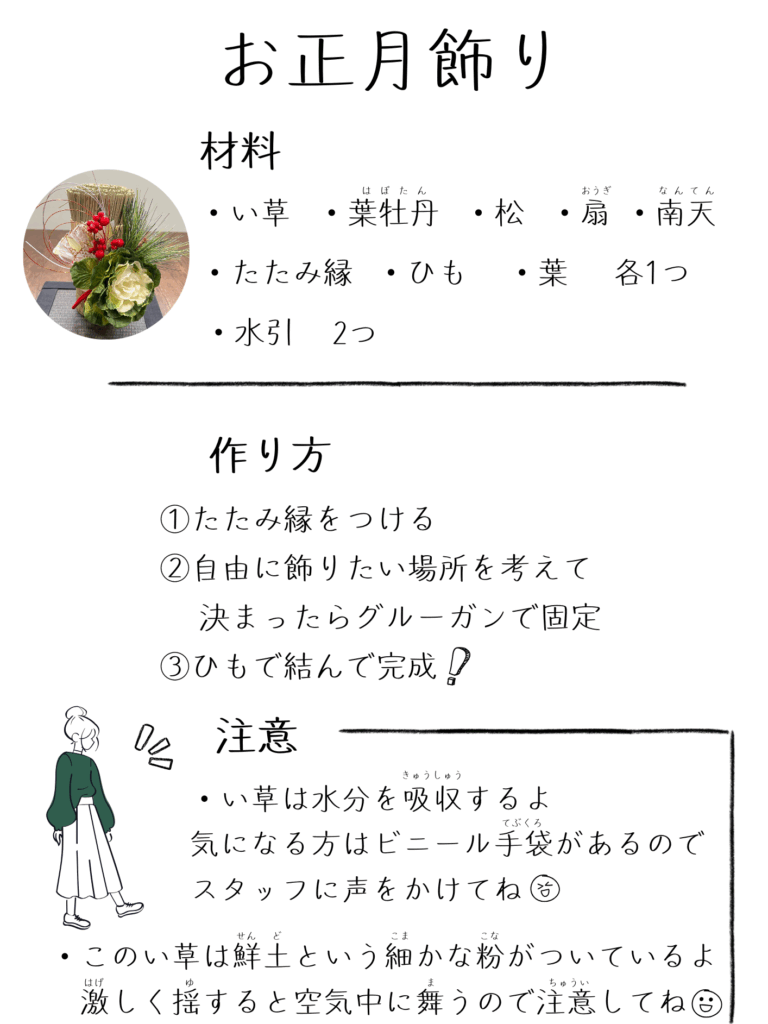 お正月飾り
材料
・い草 ・葉牡丹 ・松 ・扇 ・南天
はぼたん おうぎ なんてん
・たたみ縁 ・ひも ・葉 各1つ
・水引 2つ
作り方
①たたみ縁をつける
②自由に飾りたい場所を考えて
決まったらグルーガンで固定
③ひもで結んで完成!
注意
きゅうしゅう
・い草は水分を吸収するよ
てぶくろ
気になる方はビニール手袋があるので
スタッフに声をかけてね
せん ど こま こな
・このい草は鮮土という細かな粉がついているよ
はげ ゆ ま ちゅうい
激しく揺すると空気中に舞うので注意してね